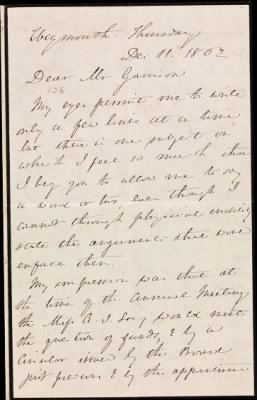 Weymouth. Thursday
Dec. 11. 1862
Dear Mr Garrison
126
My eyes permit me to write
only a few lines at a time
but there is one subject on
which I feel so much that
I beg you to allow me to say
a word or two even though I
cannot through physical inability
state the arguments that would
enforce them.
My impression was that at
the time of the Annual Meeting
the Mass A. S. Soc'y would meet
the question of funds, & by a
Circular issued by the Board
just previous & by the appearance